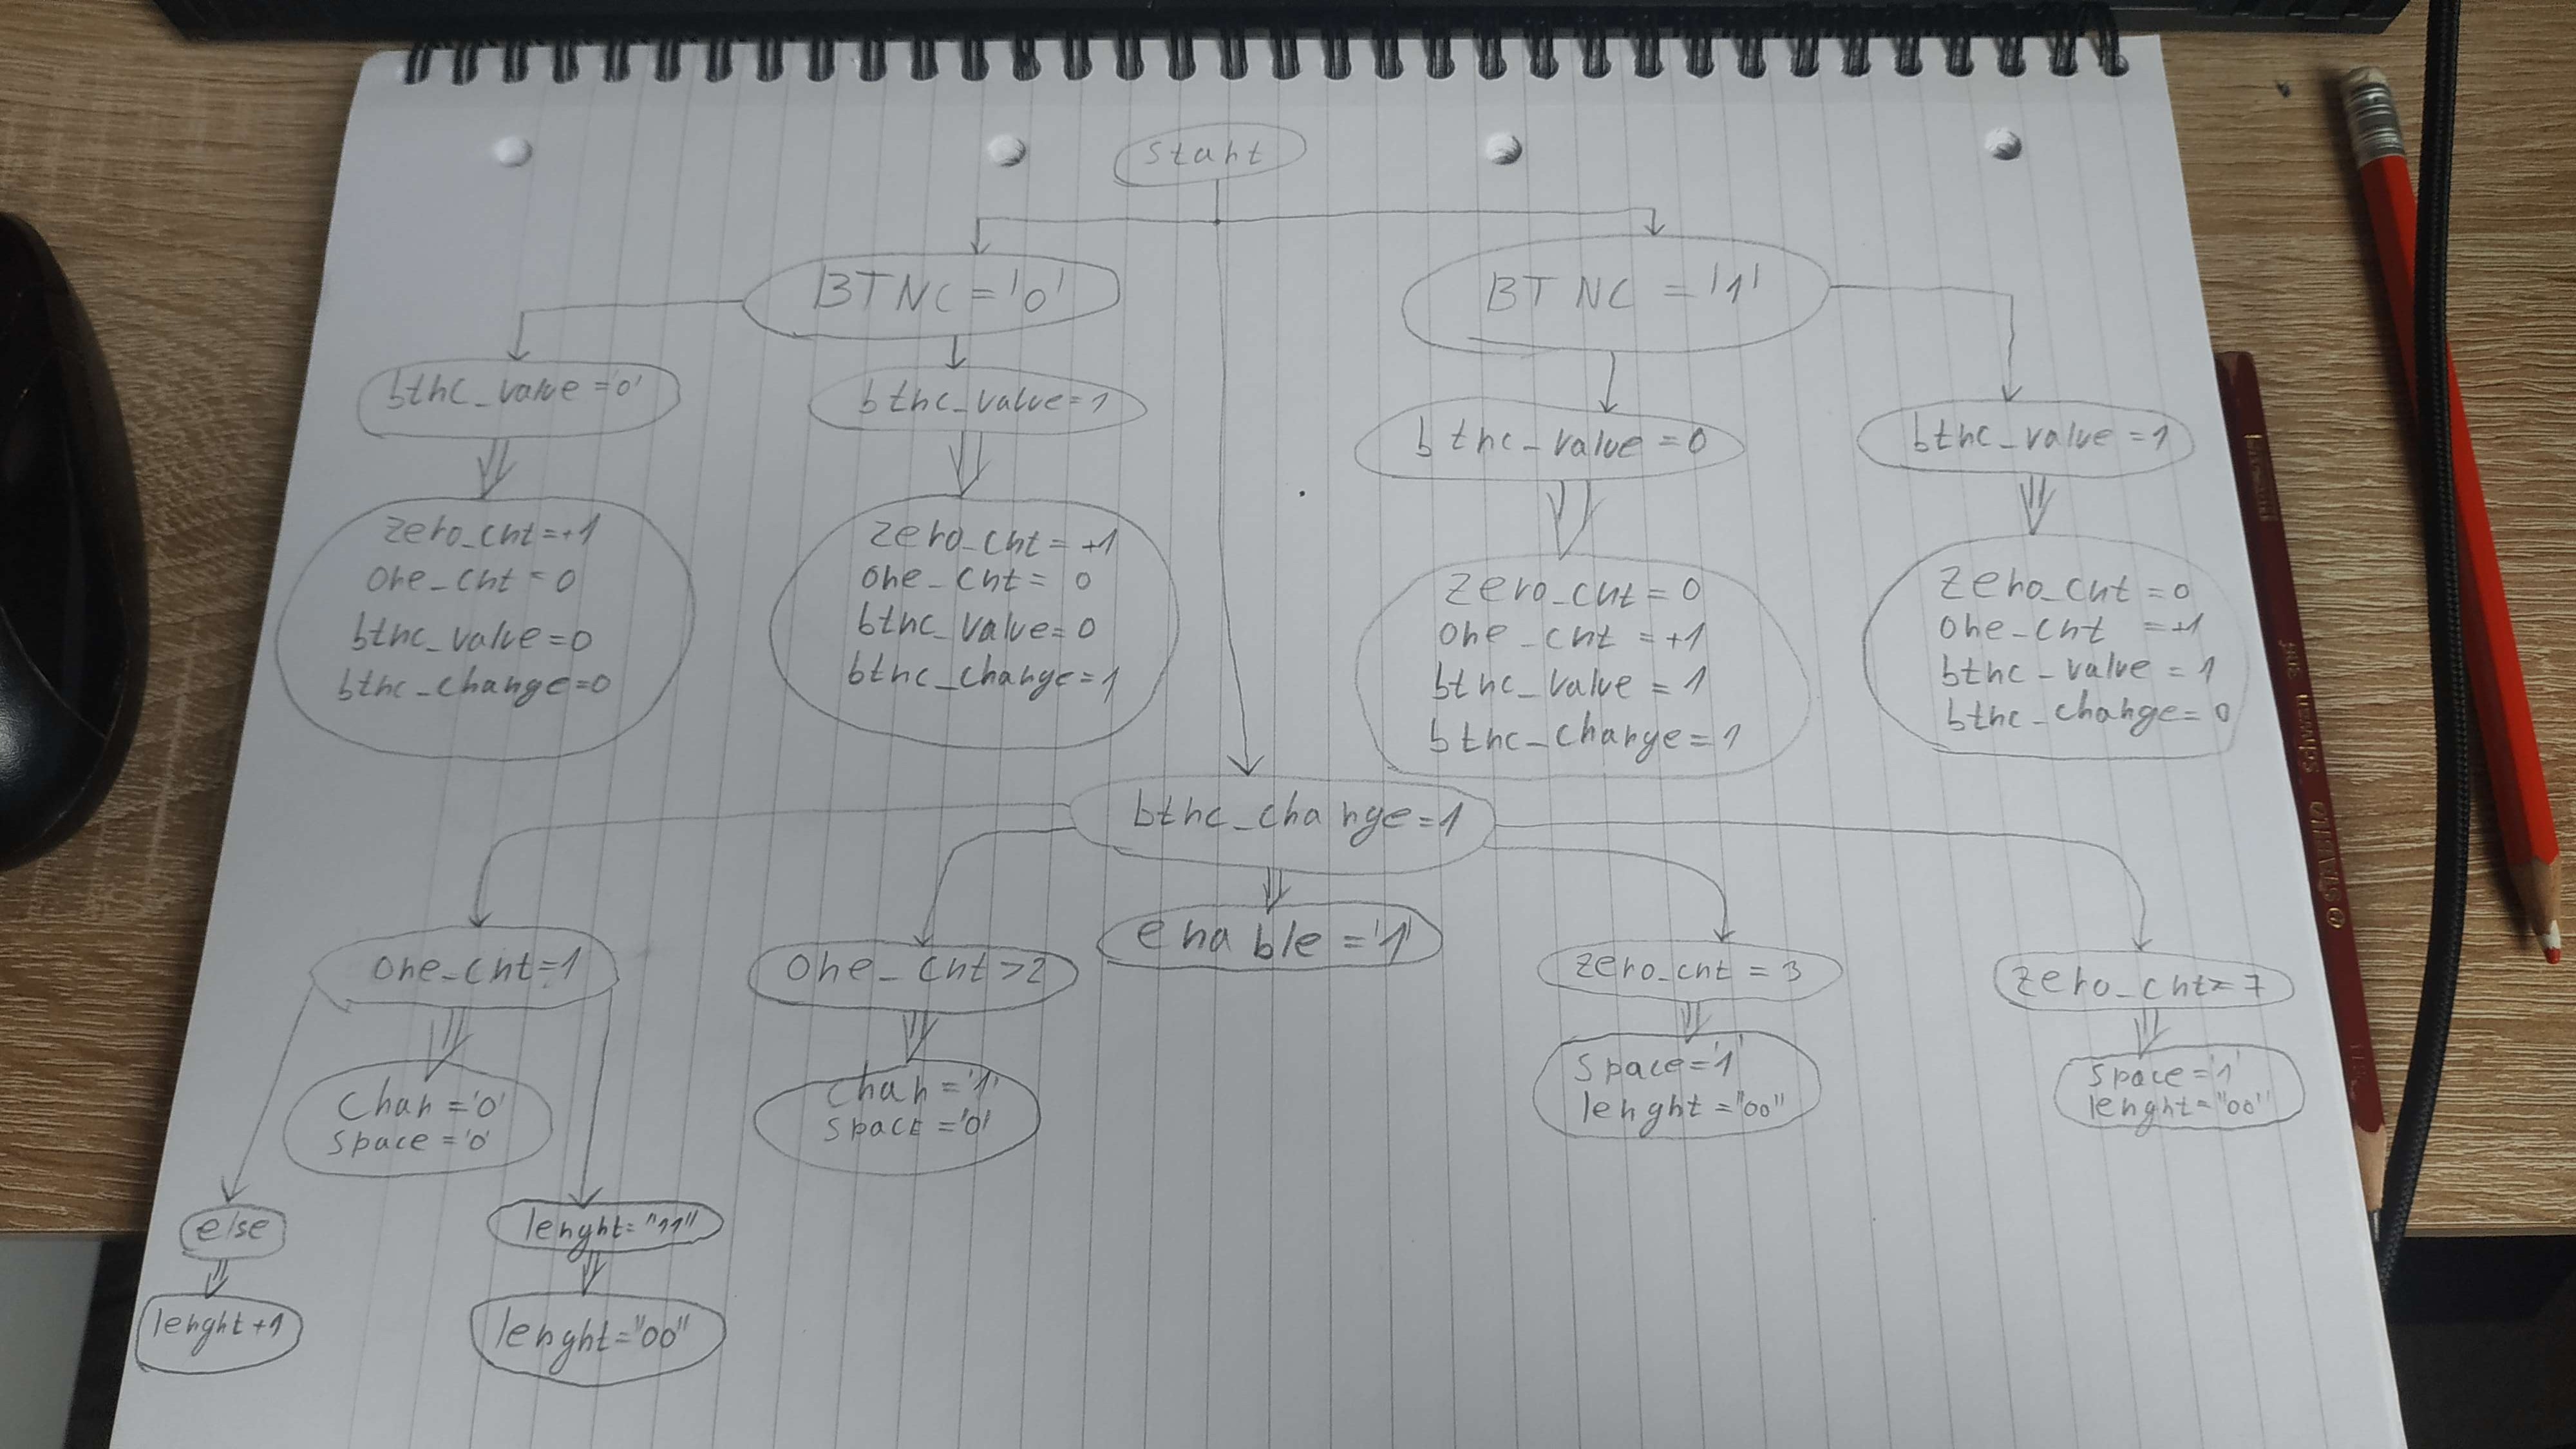 start
BTNC='0'
BTNC='1'
btnc_value='0'
btnc_value=1
btnc_value=0
btnc_value=1
zero_cnt=+1
one_cnt=0
btnc_value=0
btnc_change=0
zero_cnt=+1
one_cnt=0
btnc_value=0
btnc_change=1
zero_cnt=0
one_cnt=+1
btnc_value=1
btnc_change=1
zero_cnt=0
one_cnt=+1
btnc_value=1
btnc_change=0
btnc_change=1
enable='1'
one_cnt=1
one_cnt>2
zero_cnt=3
zero_cnt=7
char='0'
space='0'
char='1'
space='0'
space='1'
lenght="00"
space='1'
lenght="00"
else
lenght="11"
lenght+1
lenght="00"
STABILO